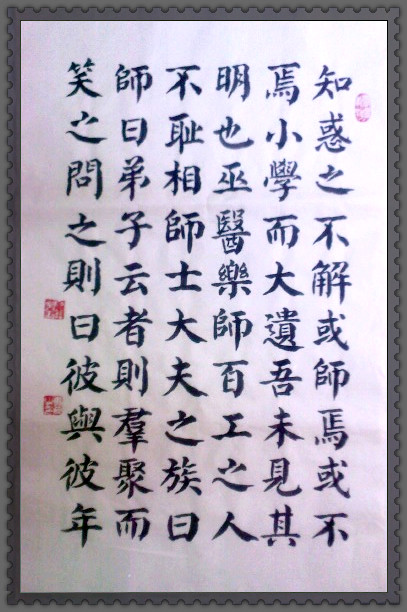 知惑之不解或師焉或不
焉小學而大遺吾未見其
明也巫醫樂師百工之人
不耻相師士大夫之族曰
師曰弟子云者則羣聚而
笑之問之則曰彼與彼年